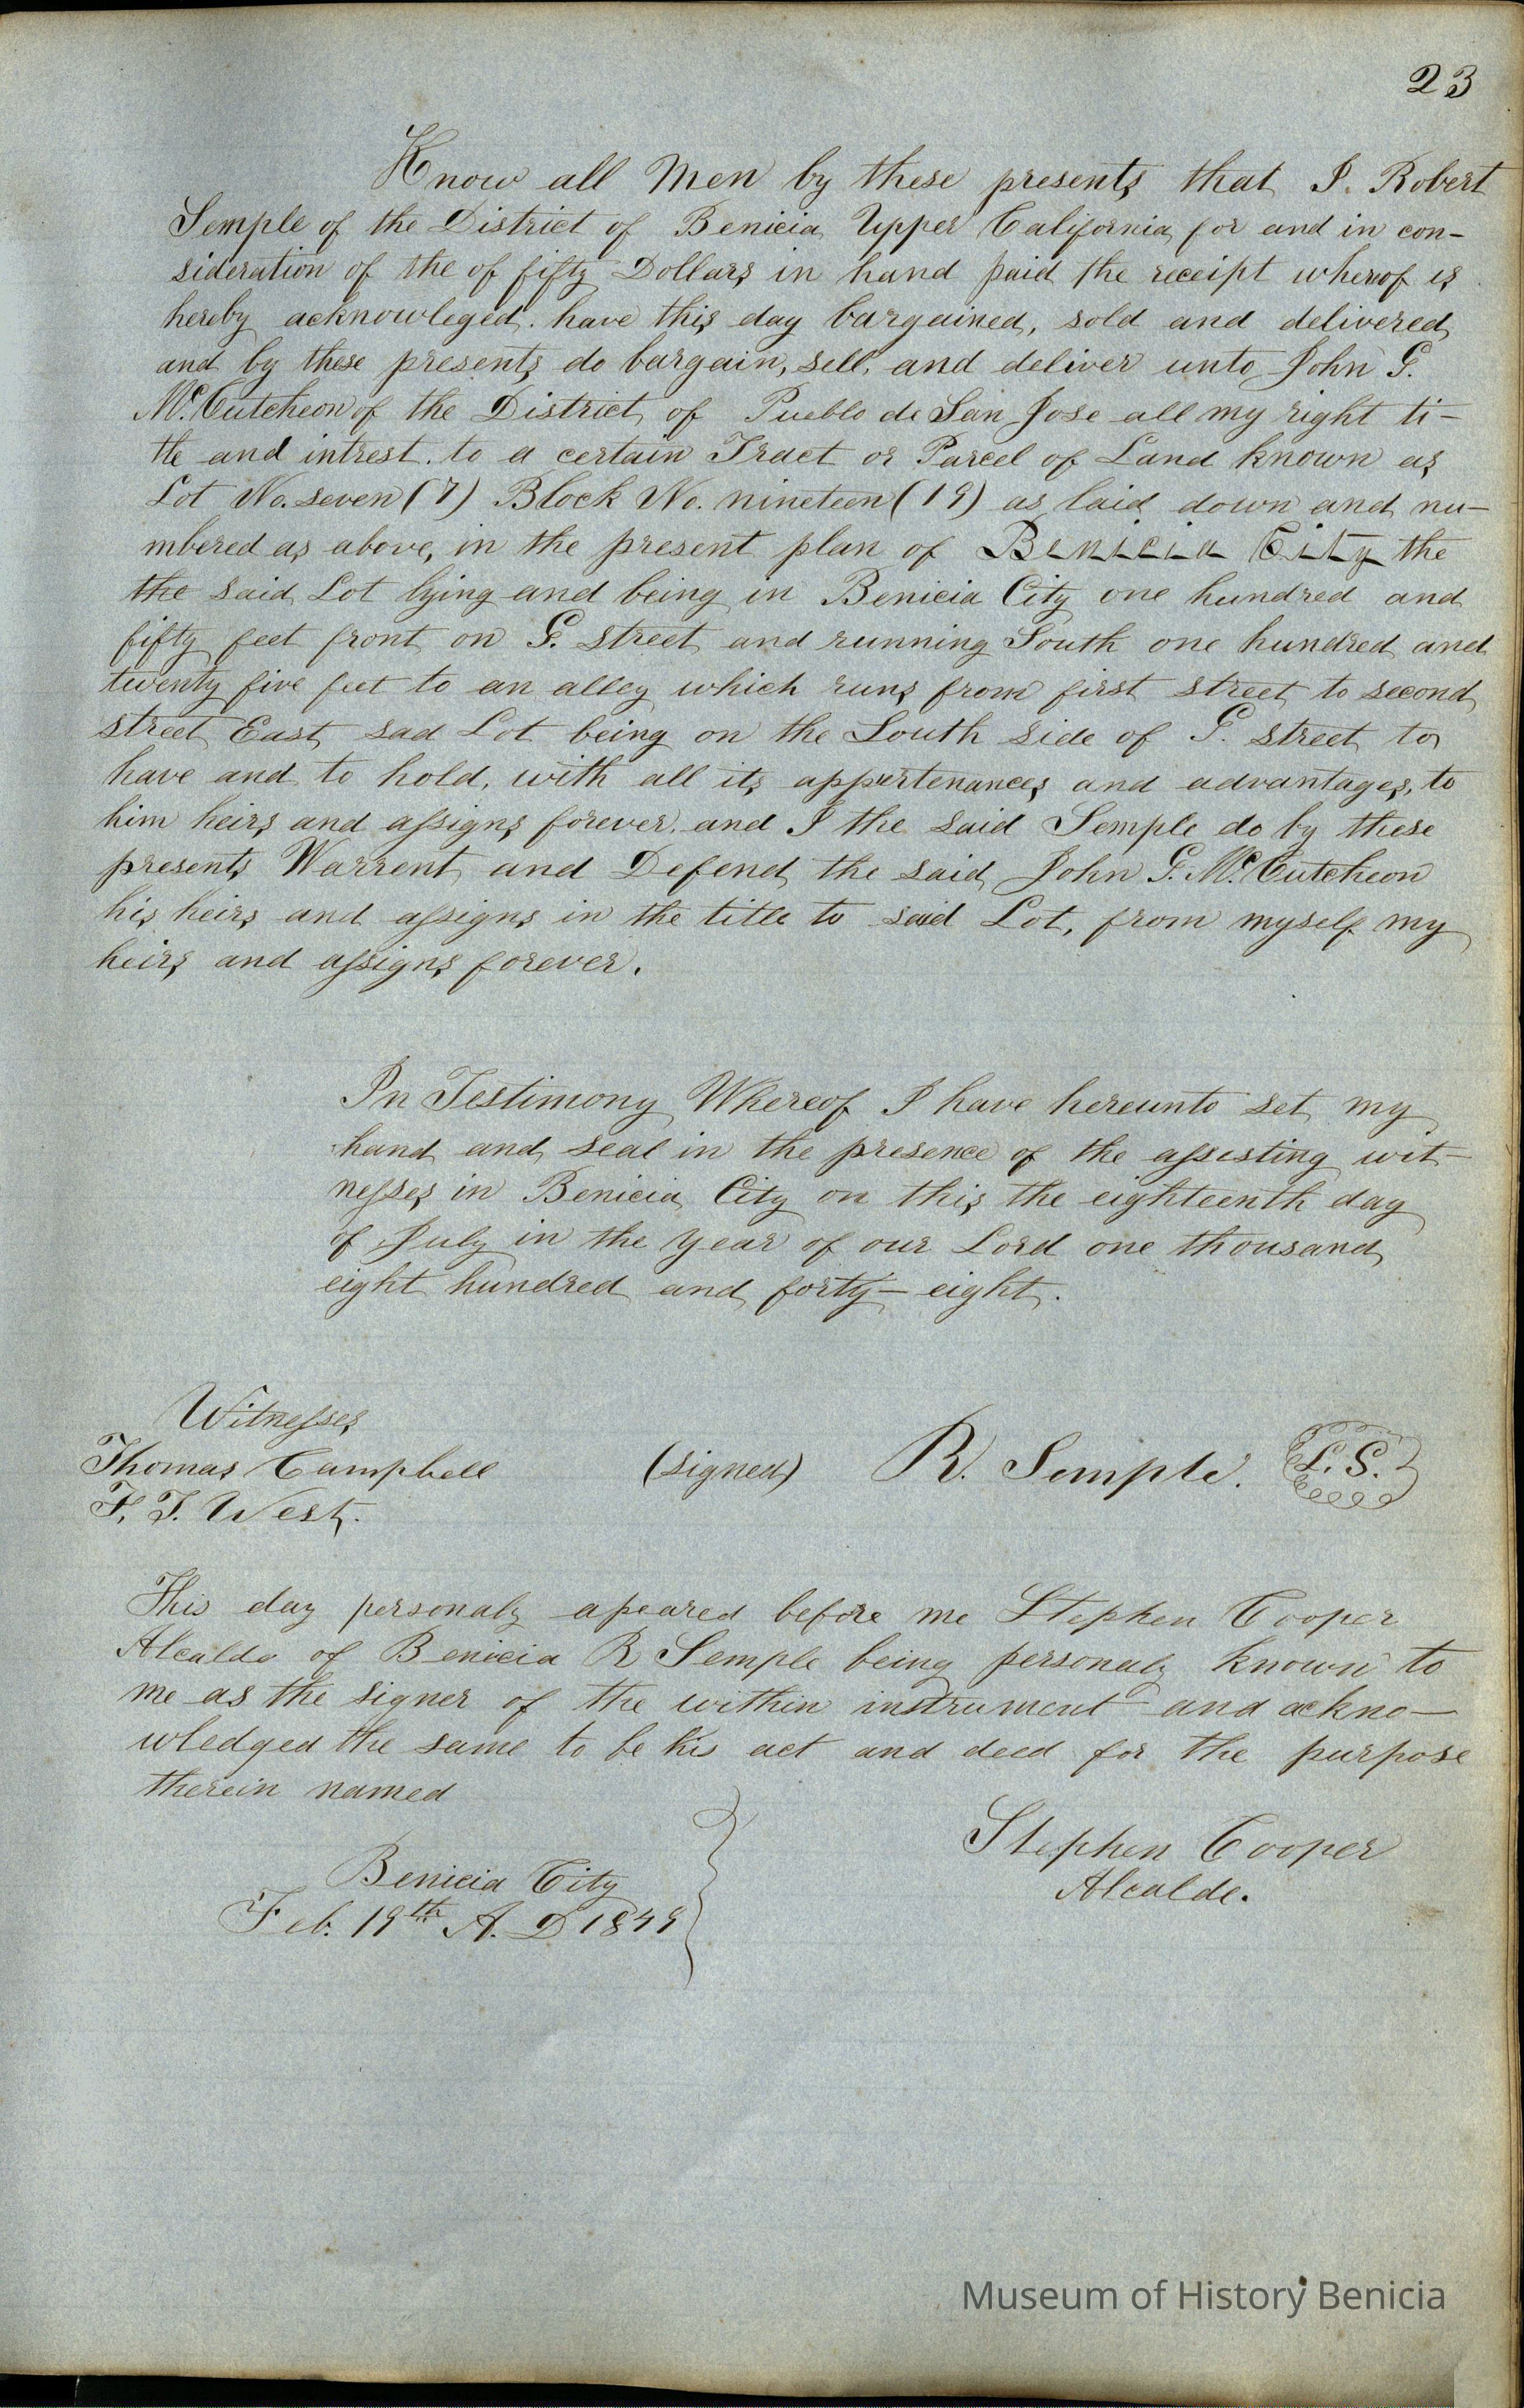 23
Know all Men by these presents that I. Robert
Semple of the District of Benicia Upper California for and in con-
sideration of the of fifty Dollars in hand paid the receipt whereof is
hereby acknowleged. have this day bargained, sold and delivered
and by these presents do bargain, sell, and deliver unto John G.
Mc. Cutcheon of the District of Pueblo de San Jose all my right ti-
tle and intrest. to a certain Tract or Parcel of Land known as
Lot No. seven (7) Block No. nineteen (19) as laid down and nu-
mbered as above, in the present plan of Benicia City the
the said Lot lying and being in Benicia City one hundred and
fifty feet front on G. street and running South one hundred and
twenty five feet to an alley which runs from first street to second
street East sad Lot being on the South side of G. street to
have and to hold, with all its appertenances and advantages, to
him heirs and assigns forever. and I the said Semple do by these
presents Warrent and Defend the said John G. Mc. Cutcheon
his heirs and assigns in the title to said Lot, from myself my
heirs and assigns forever.
In Testimony Whereof I have hereunto set my
hand and seal in the presence of the assisting wit-
nesses in Benicia City on this the eighteenth day
of July in the year of our Lord one thousand
eight hundred and forty-eight.
Witnesses
Thomas Campbell (signed) R. Semple. L. S.
F. T. West.
This day personaly apeared before me Stephen Cooper
Alcalde of Benicia R Semple being personaly known to
me as the signer of the within instrument and ackno-
wledged the same to be his act and deed for the purpose
therein named
Stephen Cooper
Alcalde.
Benicia City
Feb. 19th A. D 1849
Museum of History Benicia